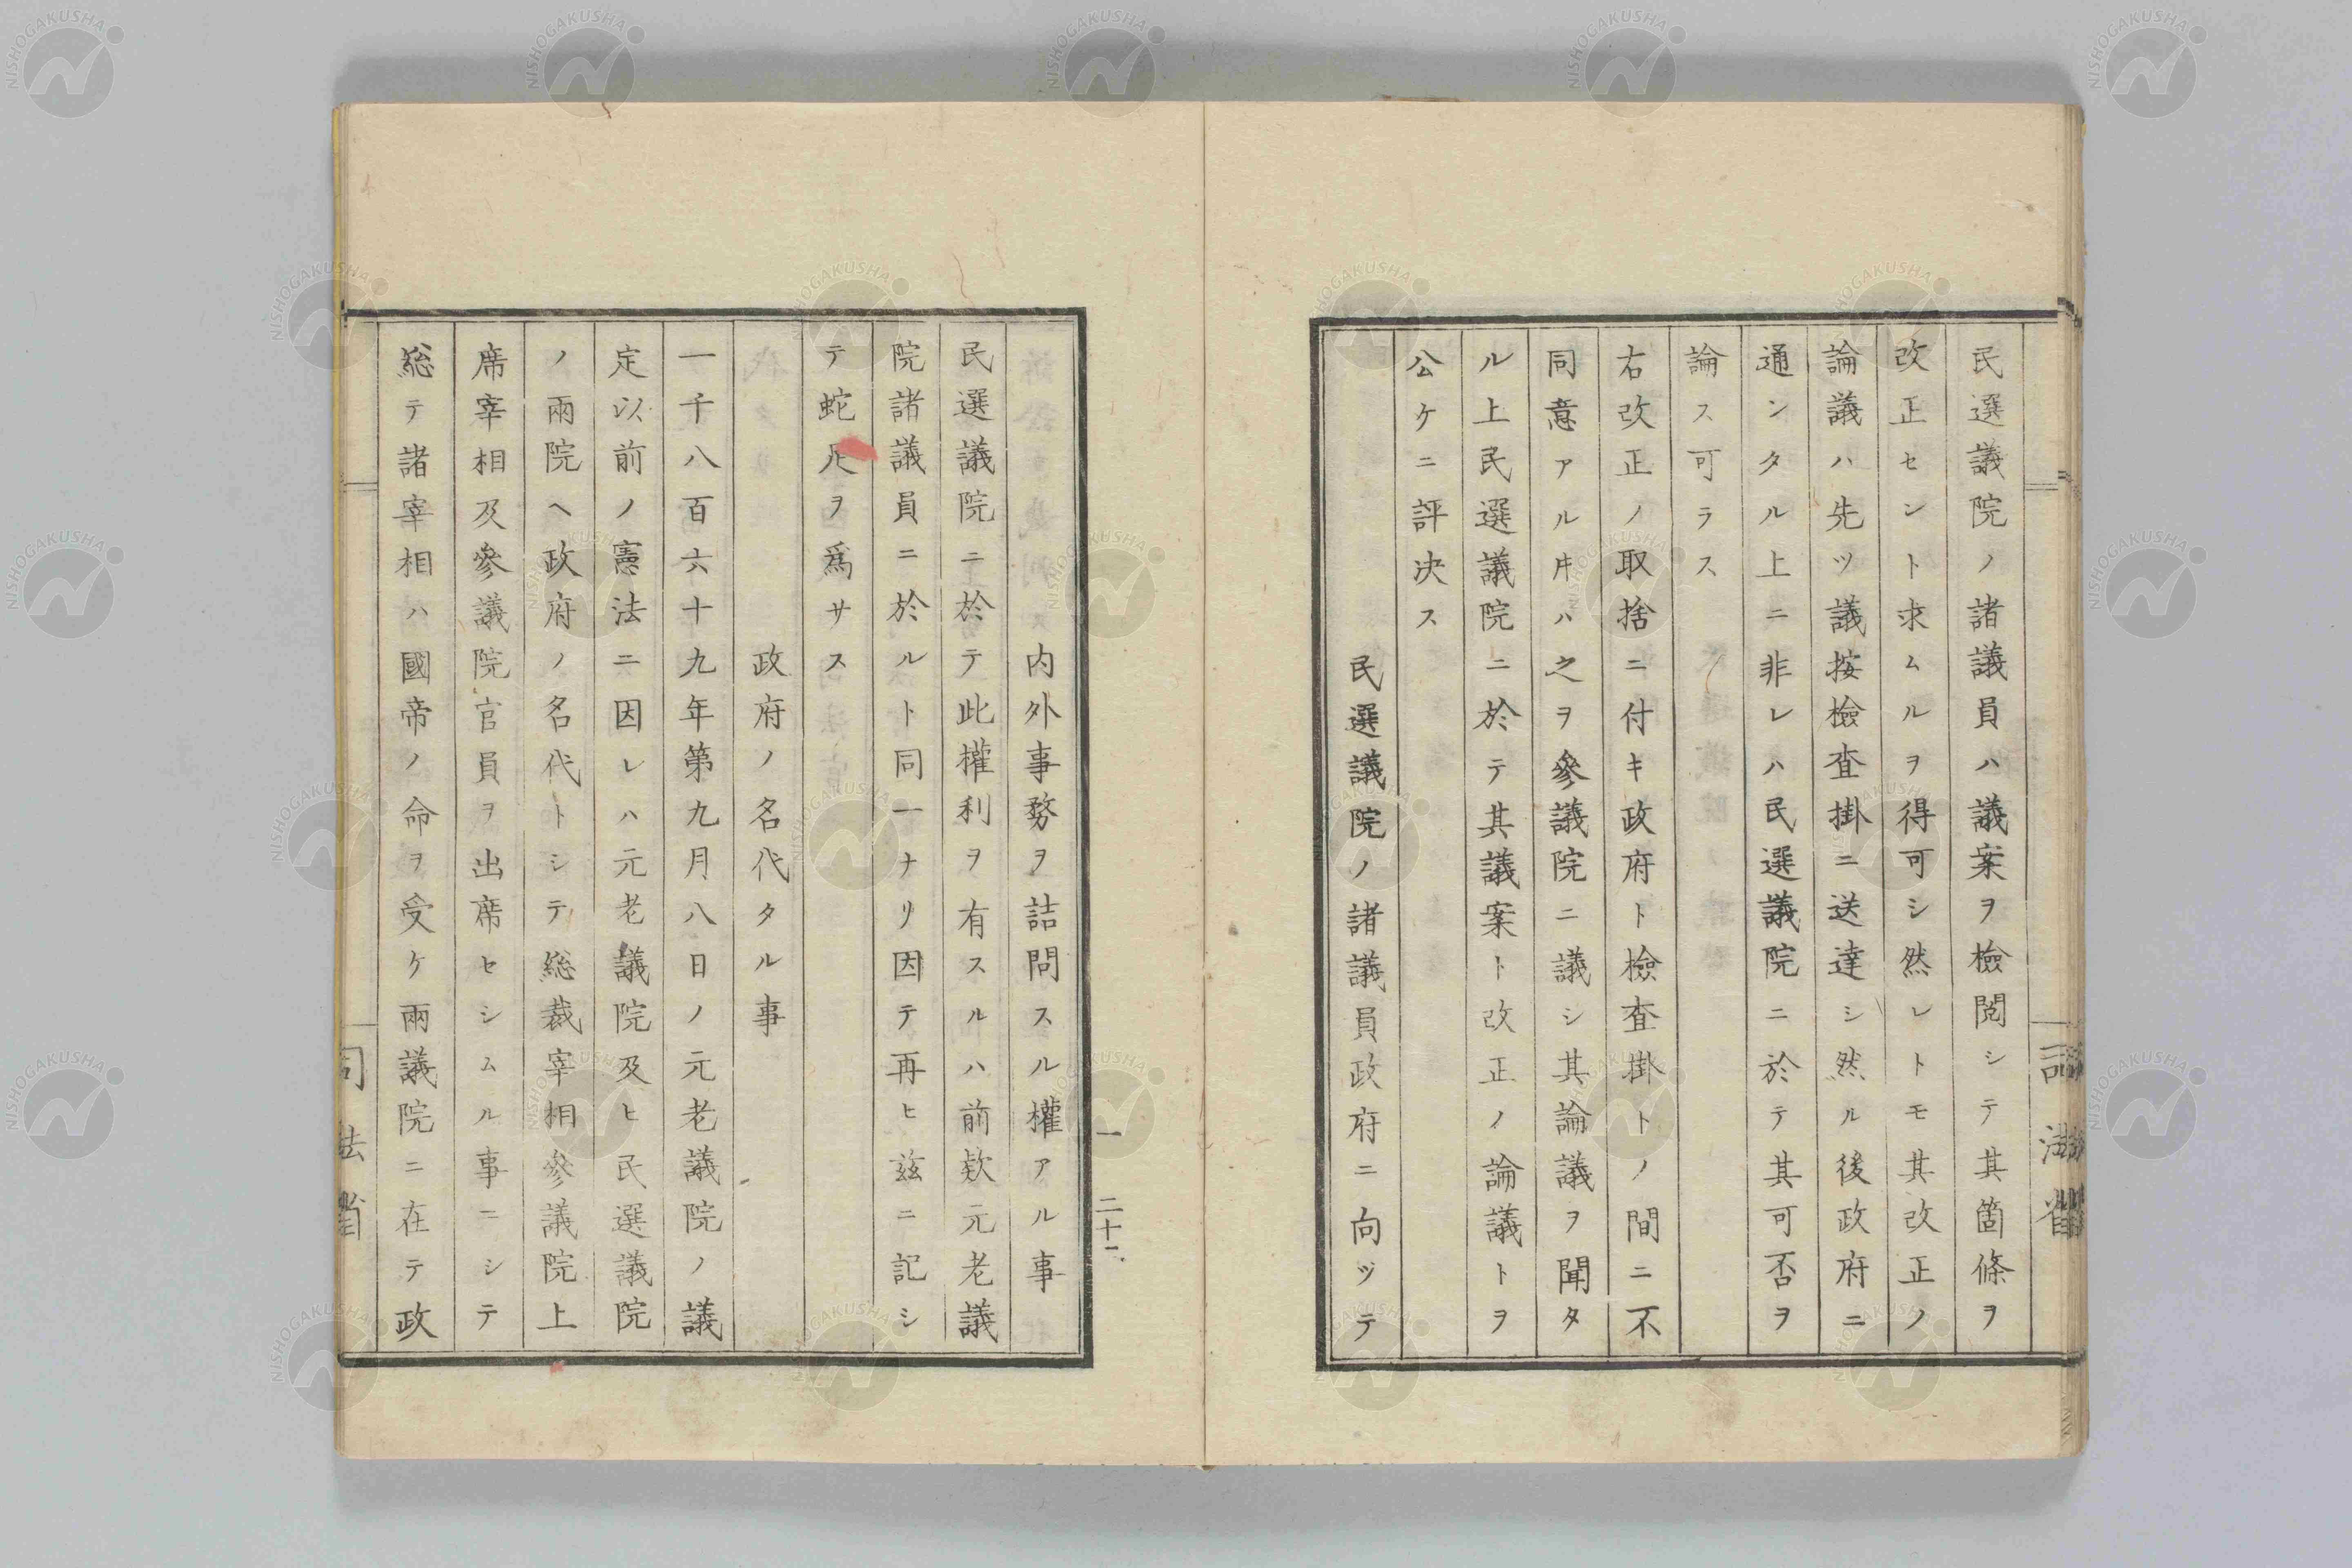 民選議院ノ諸議員ハ議案ヲ檢閲シテ其箇條ヲ
改正セント求ムルヲ得可シ然レトモ其改正ノ
論議ハ先ツ議按檢査掛ニ送達シ然ル後政府ニ
通ンタル上ニ非レハ民選議院ニ於テ其可否ヲ
論ス可ラス
右改正ノ取捨ニ付キ政府ト檢査掛トノ間ニ不
同意アル𪜈ハ之ヲ參議院ニ議シ其論議ヲ聞タ
ル上民選議院ニ於テ其議案ト改正ノ論議トヲ
公ケニ評決ス
民選議院ノ諸議員政府ニ向ッテ
一 二十二
内外事務ヲ詰問スル權アル事
民選議院ニ於テ此權利ヲ有スルハ前欵元老議
院諸議員ニ於ルト同一ナリ因テ再ヒ茲ニ記シ
テ蛇足ヲ爲サス
政府ノ名代タル事
一千八百六十九年第九月八日ノ元老議院ノ議
定以前ノ憲法ニ因レハ元老議院及ヒ民選議院
ノ兩院ヘ政府ノ名代トシテ総裁宰相參議院上
席宰相及參議院官員ヲ出席セシムル事ニシテ
総テ諸宰相ハ國帝ノ命ヲ受ケ兩議院ニ在テ政
司法省
NISHOGAKUSHA